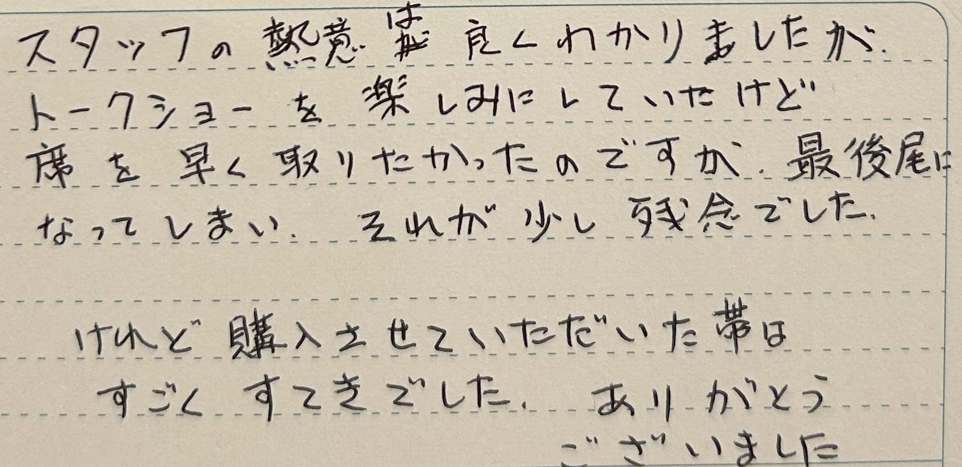 スタッフの熱意は良くわかりましたが、
トークショーを楽しみにしていたけど
席を早く取りたかったのですが、最後尾に
なってしまい、それが少し残念でした。
けれど購入させていただいた帯は
すごくすてきでした。ありがとう
ございました